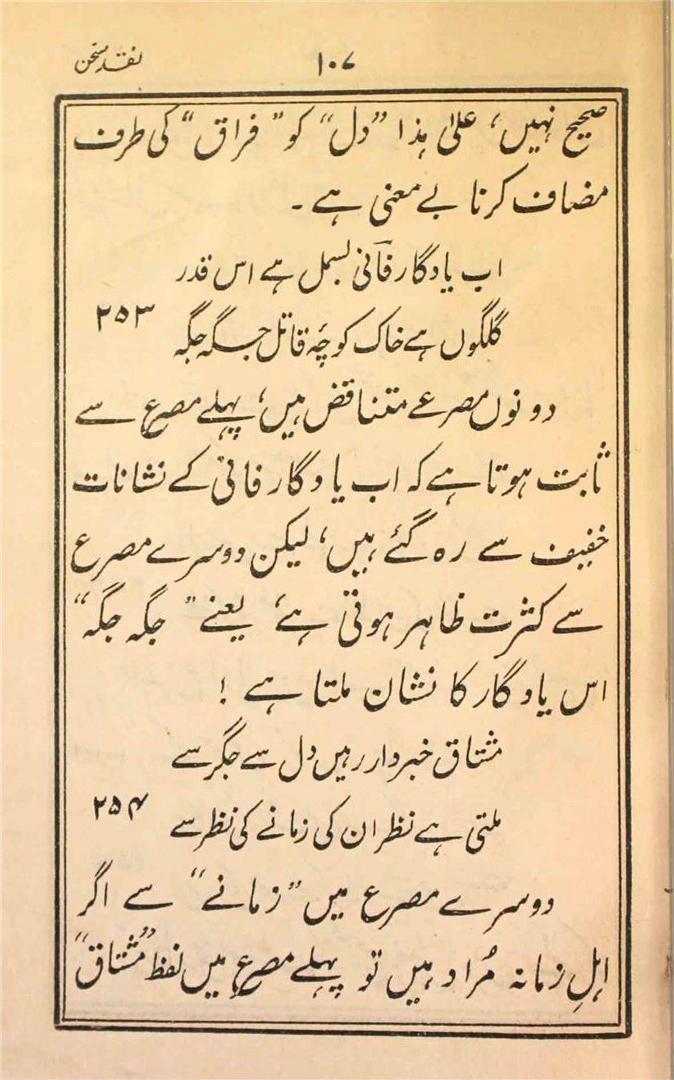 نقد سخن
۱۰۷
صحیح نہیں، علیٰ ہذا ”دل“ کو ”فراق“ کی طرف
مضاف کرنا بے معنی ہے ۔
اب یادگار فانؔی بسمل ہے اس قدر
گلگوں ہے خاک کوچۂ قاتل جگہ جگہ ۲۵۳
دونوں مصرعے متناقض ہیں، پہلے مصرع سے
ثابت ہوتا ہے کہ اب یادگار فانی کے نشانات
خفیف سے رہ گئے ہیں، لیکن دوسرے مصرع
سے کثرت ظاہر ہوتی ہے، یعنے ”جگہ جگہ“
اس یادگار کا نشان ملتا ہے !
مشتاق خبردار رہیں دل سے جگر سے
ملتی ہے نظر ان کی زمانے کی نظر سے ۲۵۴
دوسرے مصرع میں ”زمانے“ سے اگر
اہلِ زمانہ مُراد ہیں تو پہلے مصرع میں لفظ ”مشتاق“